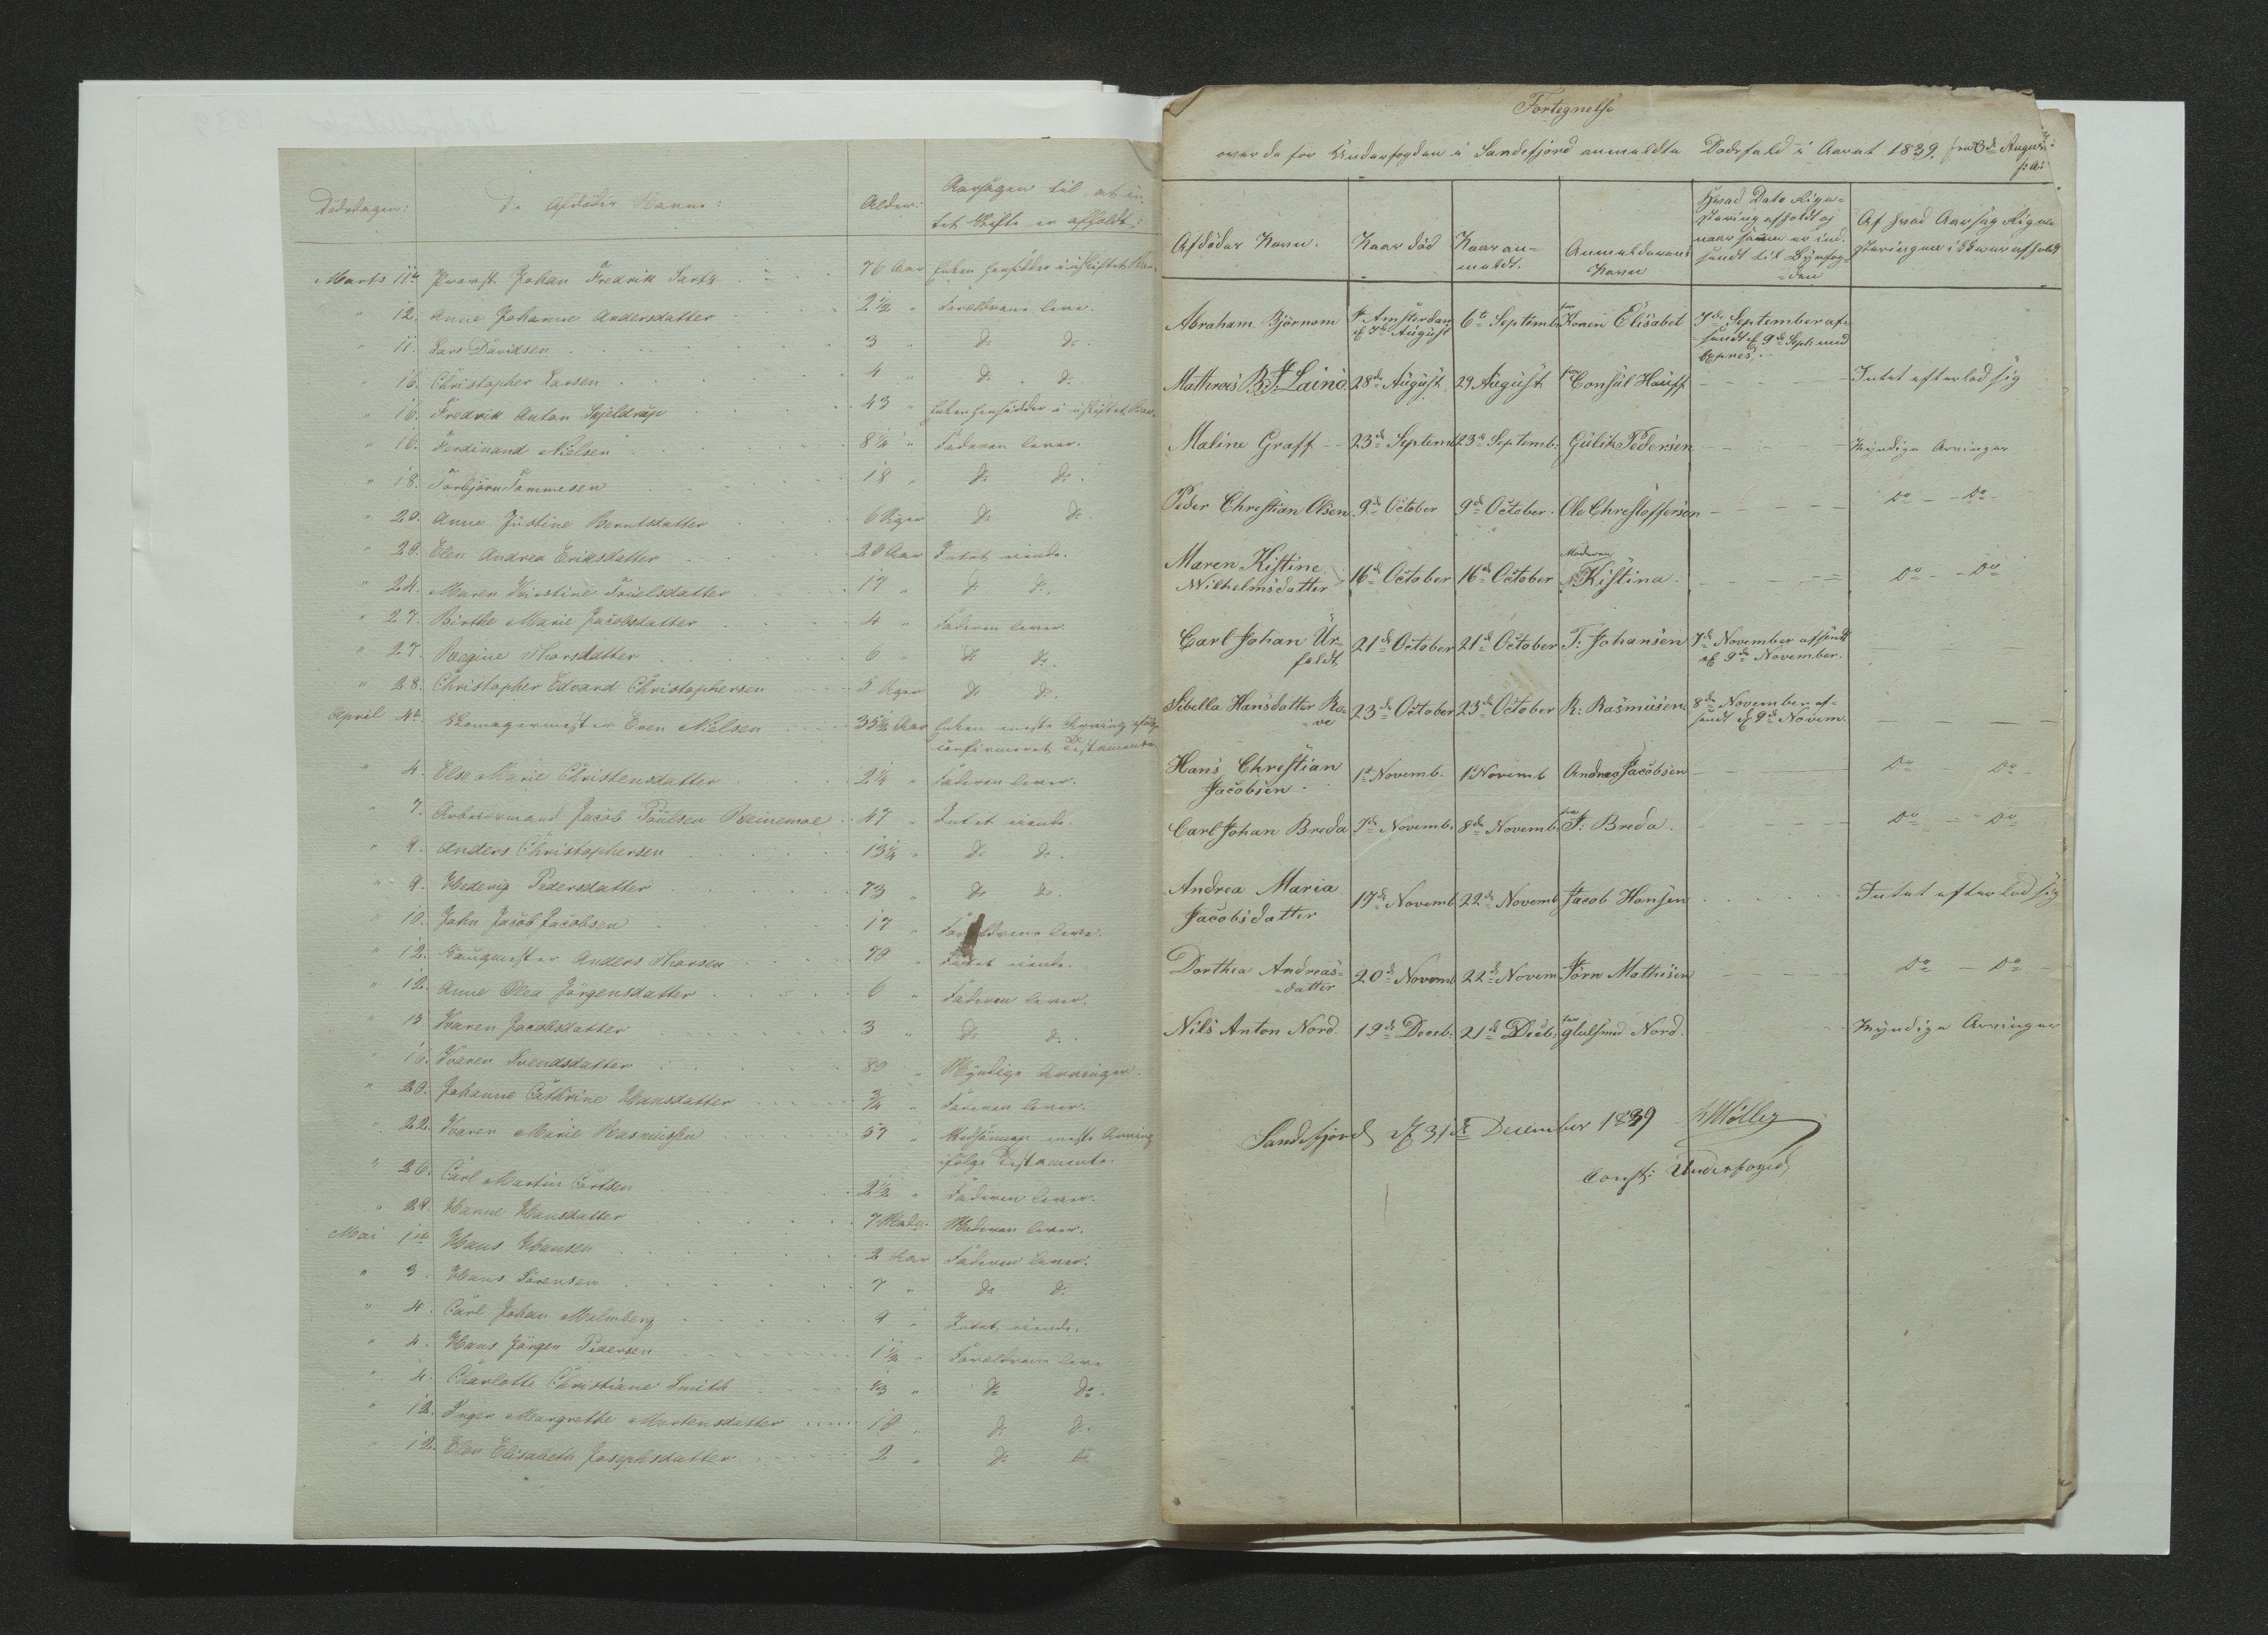 Dödsdagen: De Afdödes Navne: Alder: Aarsagen til at in-
tet Skifte er afholdt:
Marts 11te Provst Johan Fredrik Sartz 76 Aar Enken hensidder i uskiftet Boe.
" 12. Anne Johanne Andersdatter 2 1/2 " Forældrene leve.
" 11. Lars Davidsen 3 " do do.
" 16. Christopher Larsen 4 " do do.
" 16. Fredrik Anton Skjeldrup 43 " Enken hensidder i uskiftet Boe.
" 16. Ferdinand Nielsen 8 1/4 " Faderen lever.
" 18. Torbjörn Tommesen 18 " do do.
" 20. Anne Justine Berntsdatter 6 Uger do do.
" 20. Elen Andrea Eriksdatter 20 Aar Intet eiende.
" 24. Maren Kirstine Povelsdatter 17 " do do.
" 27. Birthe Marie Jacobsdatter 4 " Faderen lever.
" 27. Regine Thorsdatter 6 " do do.
" 28. Christopher Edvard Christophersen 5 Uger do do.
April 4de Skomagermester Even Nielsen 35 1/2 Aar Enken eneste Arving ifölge
confirmeret Testamente.
" 4. Else Marie Christensdatter 2 1/4 " Faderen lever.
" 7. Arbeidsmand Jacob Poulsen 47 " Intet eiende.
" 9. Anders Christophersen 13 1/4 " do do.
" 9. Hedevig Pedersdatter 73 " do do.
" 10. John Jacob Jacobsen 17 " Forældrene leve.
" 12. Anders Thorsen 79 " Intet eiende.
" 12. Anne Olea Jörgensdatter 6 " Faderen lever.
" 15. Karen Jacobsdatter 3 " do do.
" 16. Karen Svendsdatter 80 " Myndige Arvinger.
" 20. Johanne Cathrine Hansdatter 3/4 " Faderen lever.
" 22. Karen Marie Rasmussen 57 " eneste Arving
ifölge Testamente.
" 26. Carl Martin Carlsen 2 1/2 " Faderen lever.
" 29. Hanne Hansdatter 7 Maan. Moderen lever.
Mai 1ste Hans Hansen 2 Aar Faderen lever.
" 3. Hans Sörensen 7 " do do
" 4. Carl Johan Malmberg 9 " Intet eiende.
" 4. Hans Jörgen Pedersen 1 1/2 " Forældrene leve
" 4. Charlotte Christiane Smith 1/3 " do do.
" 12. Inger Margrethe Mortensdatter 10 " do do.
" 12. Elen Elisabeth Josephsdatter 2 " do do.
Fortegnelse
over de for Underfogden i Sandefjord anmeldte Dødsfald i Aaret 1839, fra 3de August
s: A:
Afdödes Navn. Naar död Naar an-
meldt. Anmelderens
Navn Hvad Dato Regi-
strering afholdt og
naar samme er ind-
sendt til Byefog-
den Af hvad Aarsag Regi-
streringen ikke var afholdt
Abraham Björnom I Amsterdam
d 7de August 6te Septemb. fru Karen Elisabet 7de September af-
sendt d 9de Septb med
Expres.
Mathæus B. J. Laind. 28de August 29 August fru Consul Hauff Intet efterlod sig
Maline Graff 23de Septemb 23de Septemb: Gulik Pedersen Myndige Arvinger
Peder Chrestian Olsen 9de October 9de October. Ole Chrestoffersen Do Do
Maren Kistine
Wilhelmsdatter 16de October 16de October Moderen
Kistina Do Do
Carl Johan Ur-
feldt 21de October 21de October T: Johansen 7de November afsendt
d 9de November.
Sibella Hansdatter Ro-
ve 23de October 23de October R: Rasmusen 8de November af-
sendt d 9de Novem.
Hans Chrestian
Jacobsen 1te Novemb. 1te Novemb Andreas Jacobsen Do Do
Carl Johan Breda 7de Novemb. 8de Novemb. fru J: Breda. Do Do
Andrea Maria
Jacobsdatter 17de Novemb 22de Novemb Jacob Hansen Intet efterlod sig
Dorthea Andreas-
datter 20de Novemb 22de Novem Jörn Mathisen Do Do
Nils Anton Nord. 19de Deceb: 21de Deceb: fru Nord. Myndige Arvinger
Sandefjord d 31de December 1839 Mølley
Const: Underfoged